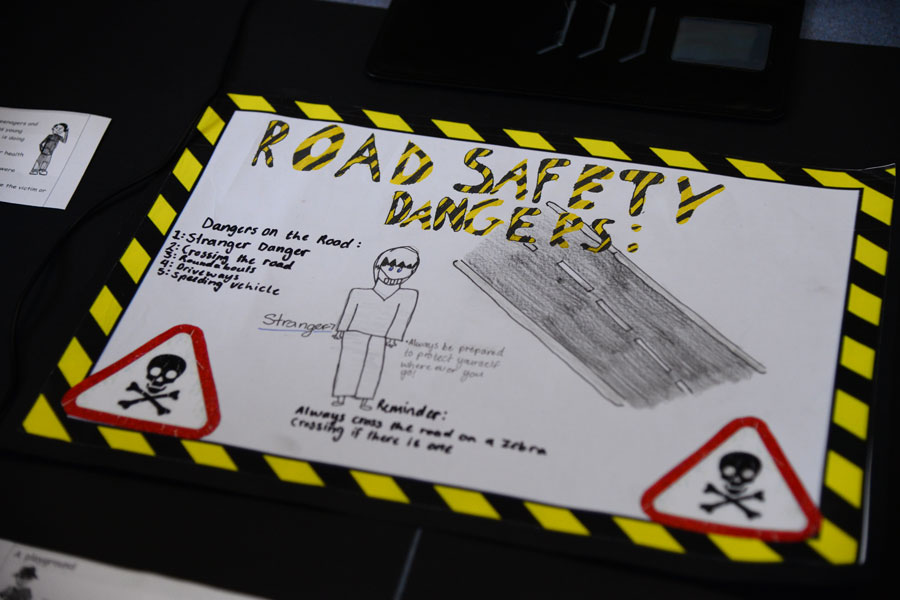 ROAD SAFETY
DANGERS:
Dangers on the Road:
1: Stranger Danger
2: Crossing the road
3: Roundabouts
4: Driveways
5: Speeding vehicle
Stranger?
• Always be prepared
to protect yourself
where ever you
go!
Reminder:
Always cross the road on a Zebra
Crossing if there is one
teenagers and
young
is doing
health
were
e the victim or
A playground